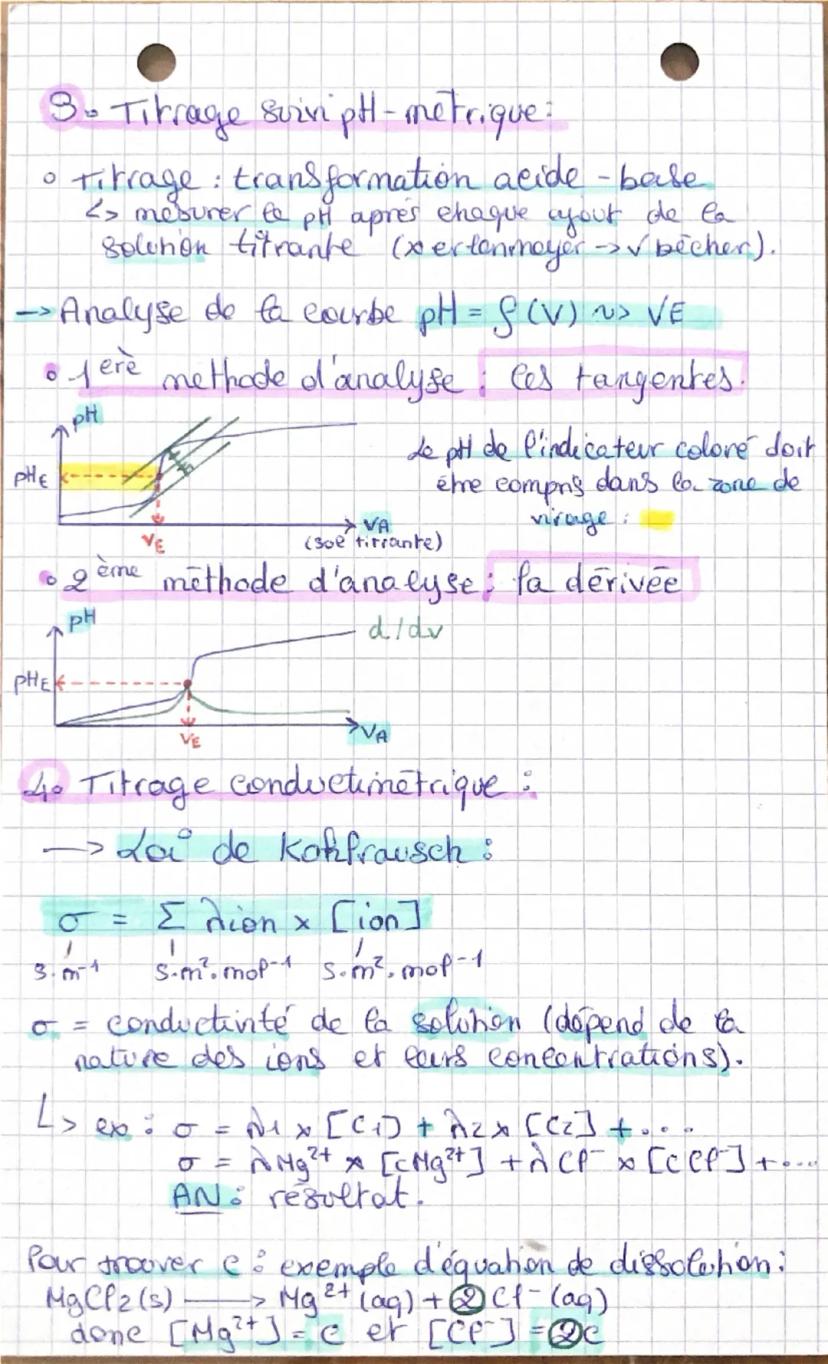 3. Titrage suivi pH-métrique :
° Titrage : transformation acide-base
↳ mesurer le pH après chaque ajout de la
solution titrante (x erlenmeyer → √ bécher).
→ Analyse de la courbe pH = f(V) ~> VE
° 1ère méthode d'analyse : les tangentes.
pH
pHE
VE
VA
(sol° titrante)
Le pH de l'indicateur coloré doit
être compris dans la zone de
virage :
° 2ème méthode d'analyse : la dérivée
pH
d/dv
pHE
VE
VA
4. Titrage conductimétrique :
→ Loi de Kohlrausch :
σ = Σ λion x [ion]
S.m⁻¹ S.m².mol⁻¹ S.m².mol⁻¹
σ = conductivité de la solution (dépend de la
nature des ions et leurs concentrations).
↳ ex : σ = λ1 x [C1] + λ2 x [C2] + ...
σ = λMg²⁺ x [cMg²⁺] + λCl⁻ x [cCl⁻] + ...
AN : résultat.
Pour trouver c : exemple d'équation de dissolution :
MgCl2(s) → Mg²⁺(aq) + 2 Cl⁻(aq)
donc [Mg²⁺] = c et [Cl⁻] = 2c